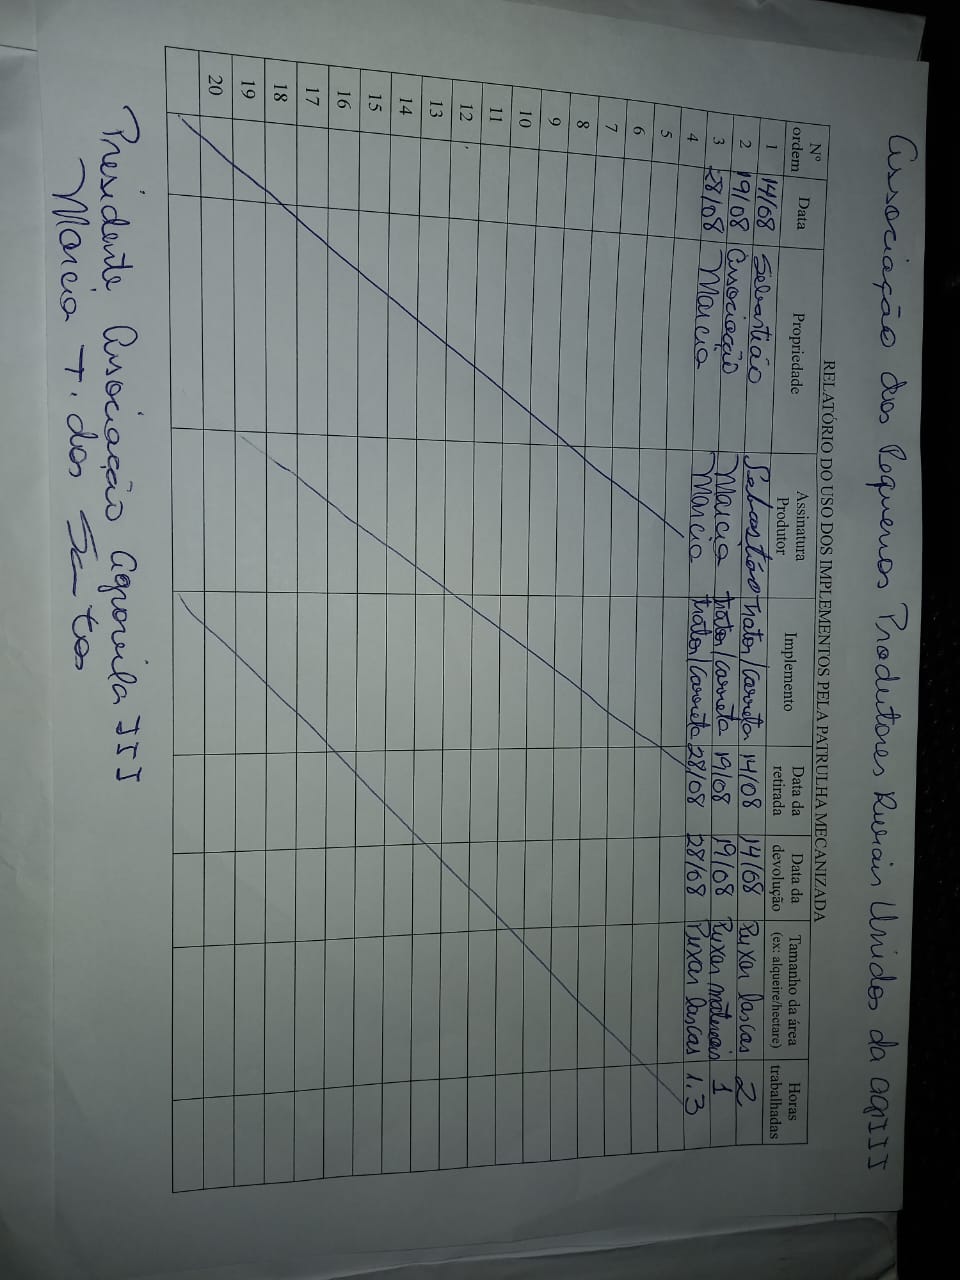 Associação dos Pequenos Produtores Rurais Unidos da agrIII
RELATÓRIO DO USO DOS IMPLEMENTOS PELA PATRULHA MECANIZADA
Nº ordem Data Propriedade Assinatura Produtor Implemento Data da retirada Data da devolução Tamanho da área (ex: alqueire/hectare) Horas trabalhadas
1 14/08 Sebastião Sebastião trator/carreta 14/08 14/08 Puxar lascas 2
2 19/08 Associação Marcia trator/carreta 19/08 19/08 Puxar materiais 1
3 28/08 Marcia Marcia trator/carreta 28/08 28/08 Puxar lascas 1.3
4
5
6
7
8
9
10
11
12
13
14
15
16
17
18
19
20
Presidente Associação Agrovila III
Marcia T. dos Santos